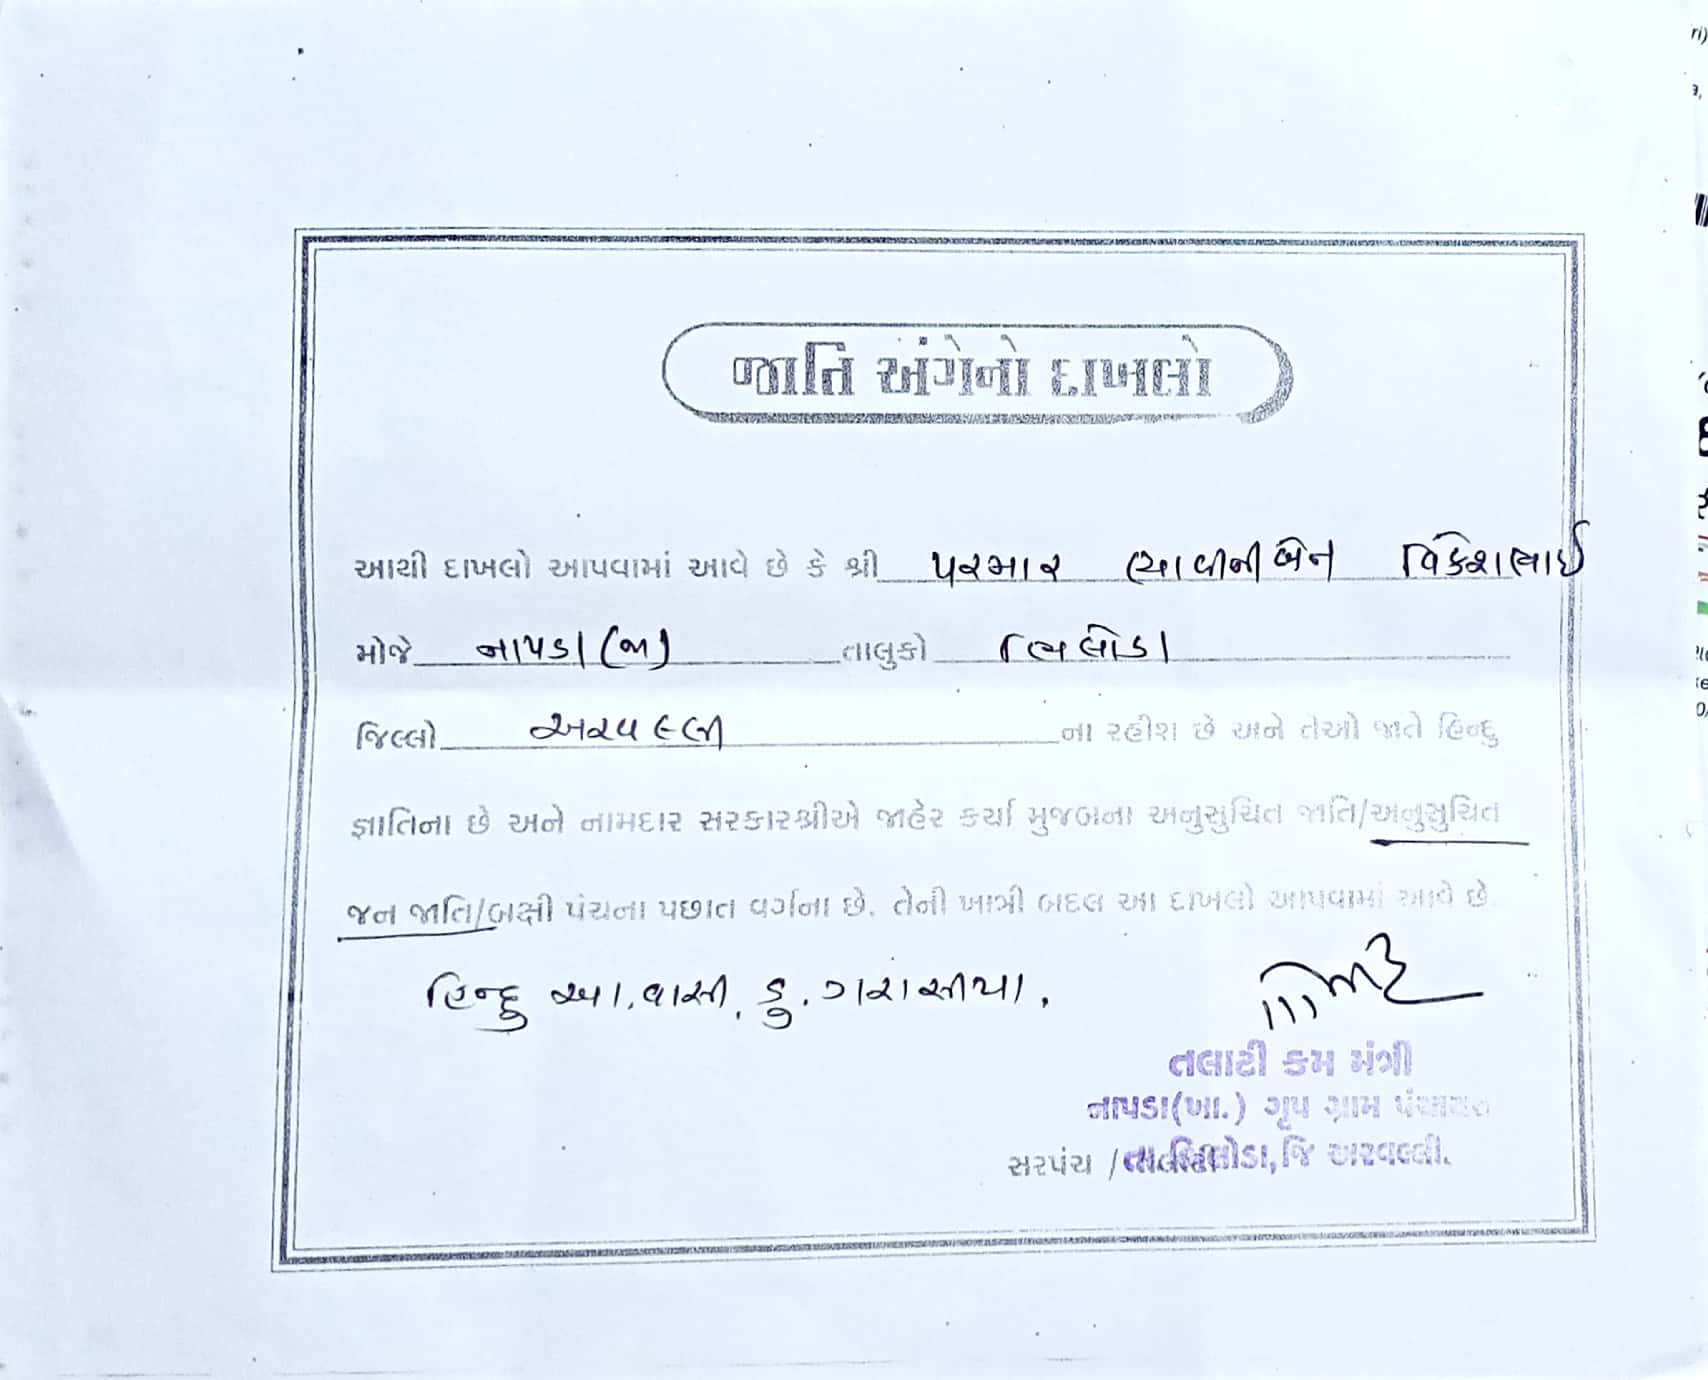 જાતિ અંગેનો દાખલો
આથી દાખલો આપવામાં આવે છે કે શ્રી પરમાર બેન વિકેશભાઈ
મોજે નાપડા (જા) તાલુકો ભિલોડા
જિલ્લો અરવલ્લી ના રહીશ છે અને તેઓ જાતે હિન્દુ
જ્ઞાતિના છે અને નામદાર સરકારશ્રીએ જાહેર કર્યા મુજબના અનુસુચિત જાતિ/અનુસુચિત
જન જાતિ/બક્ષી પંચના પછાત વર્ગના છે. તેની ખાત્રી બદલ આ દાખલો આપવામાં આવે છે.
હિન્દુ આ.વાસી. ડુ. ગરાસીયા.
તલાટી કમ મંત્રી
નાપડા(ખા.) ગૃપ ગ્રામ પંચાયત
સરપંચ / તા.ભિલોડા,જિ અરવલ્લી.